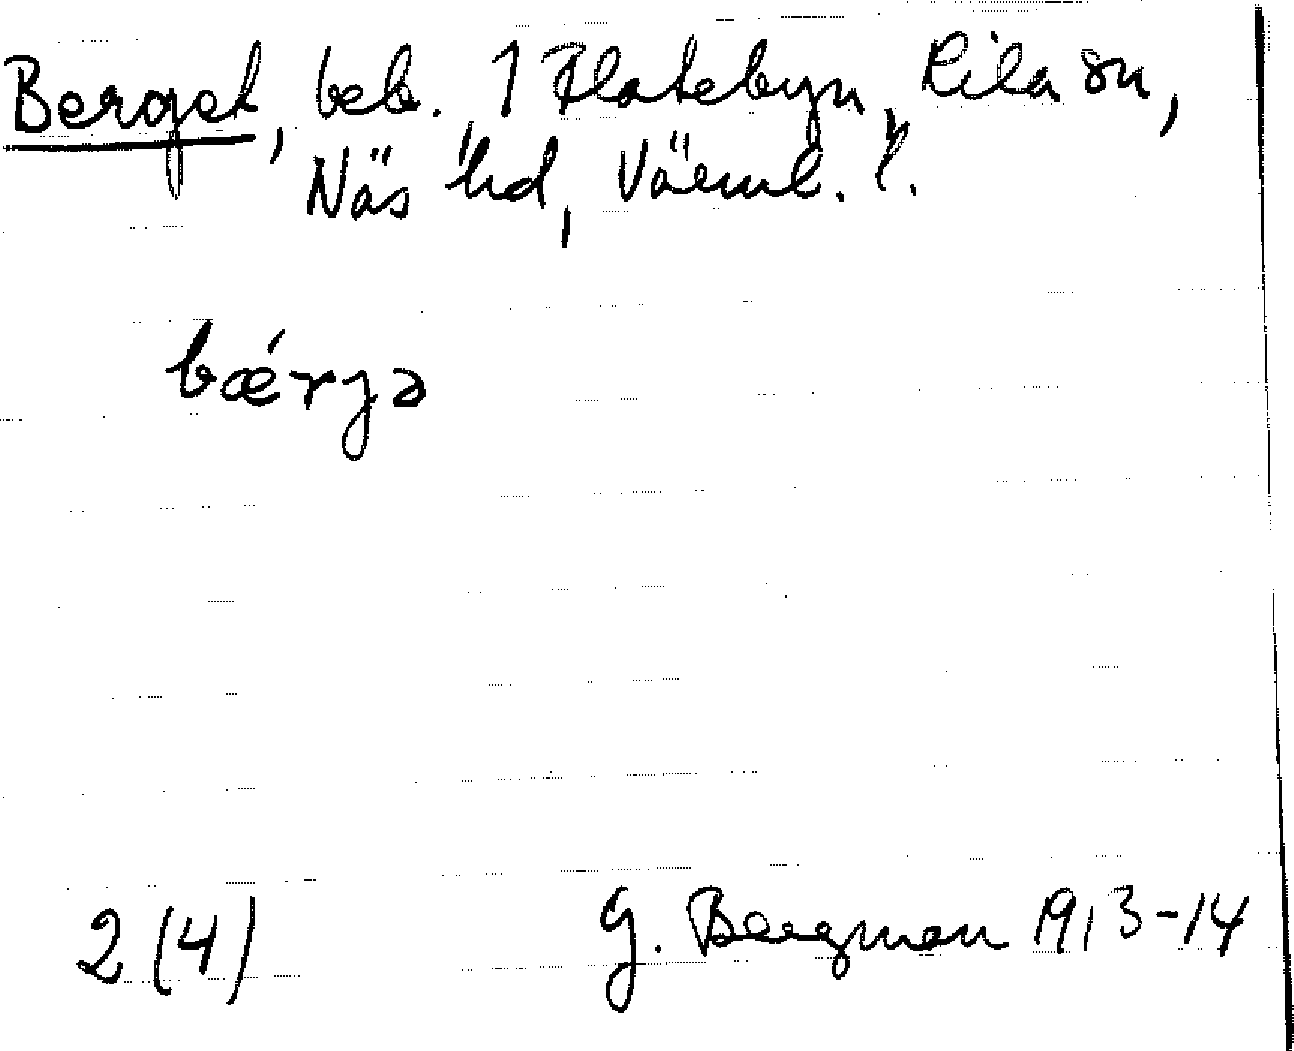 Berget, beb. 1 Flatebyn, Kila sn,
Näs hd, Värml. l.
bǽrjə
2 (4) G. Bergman 1913-14